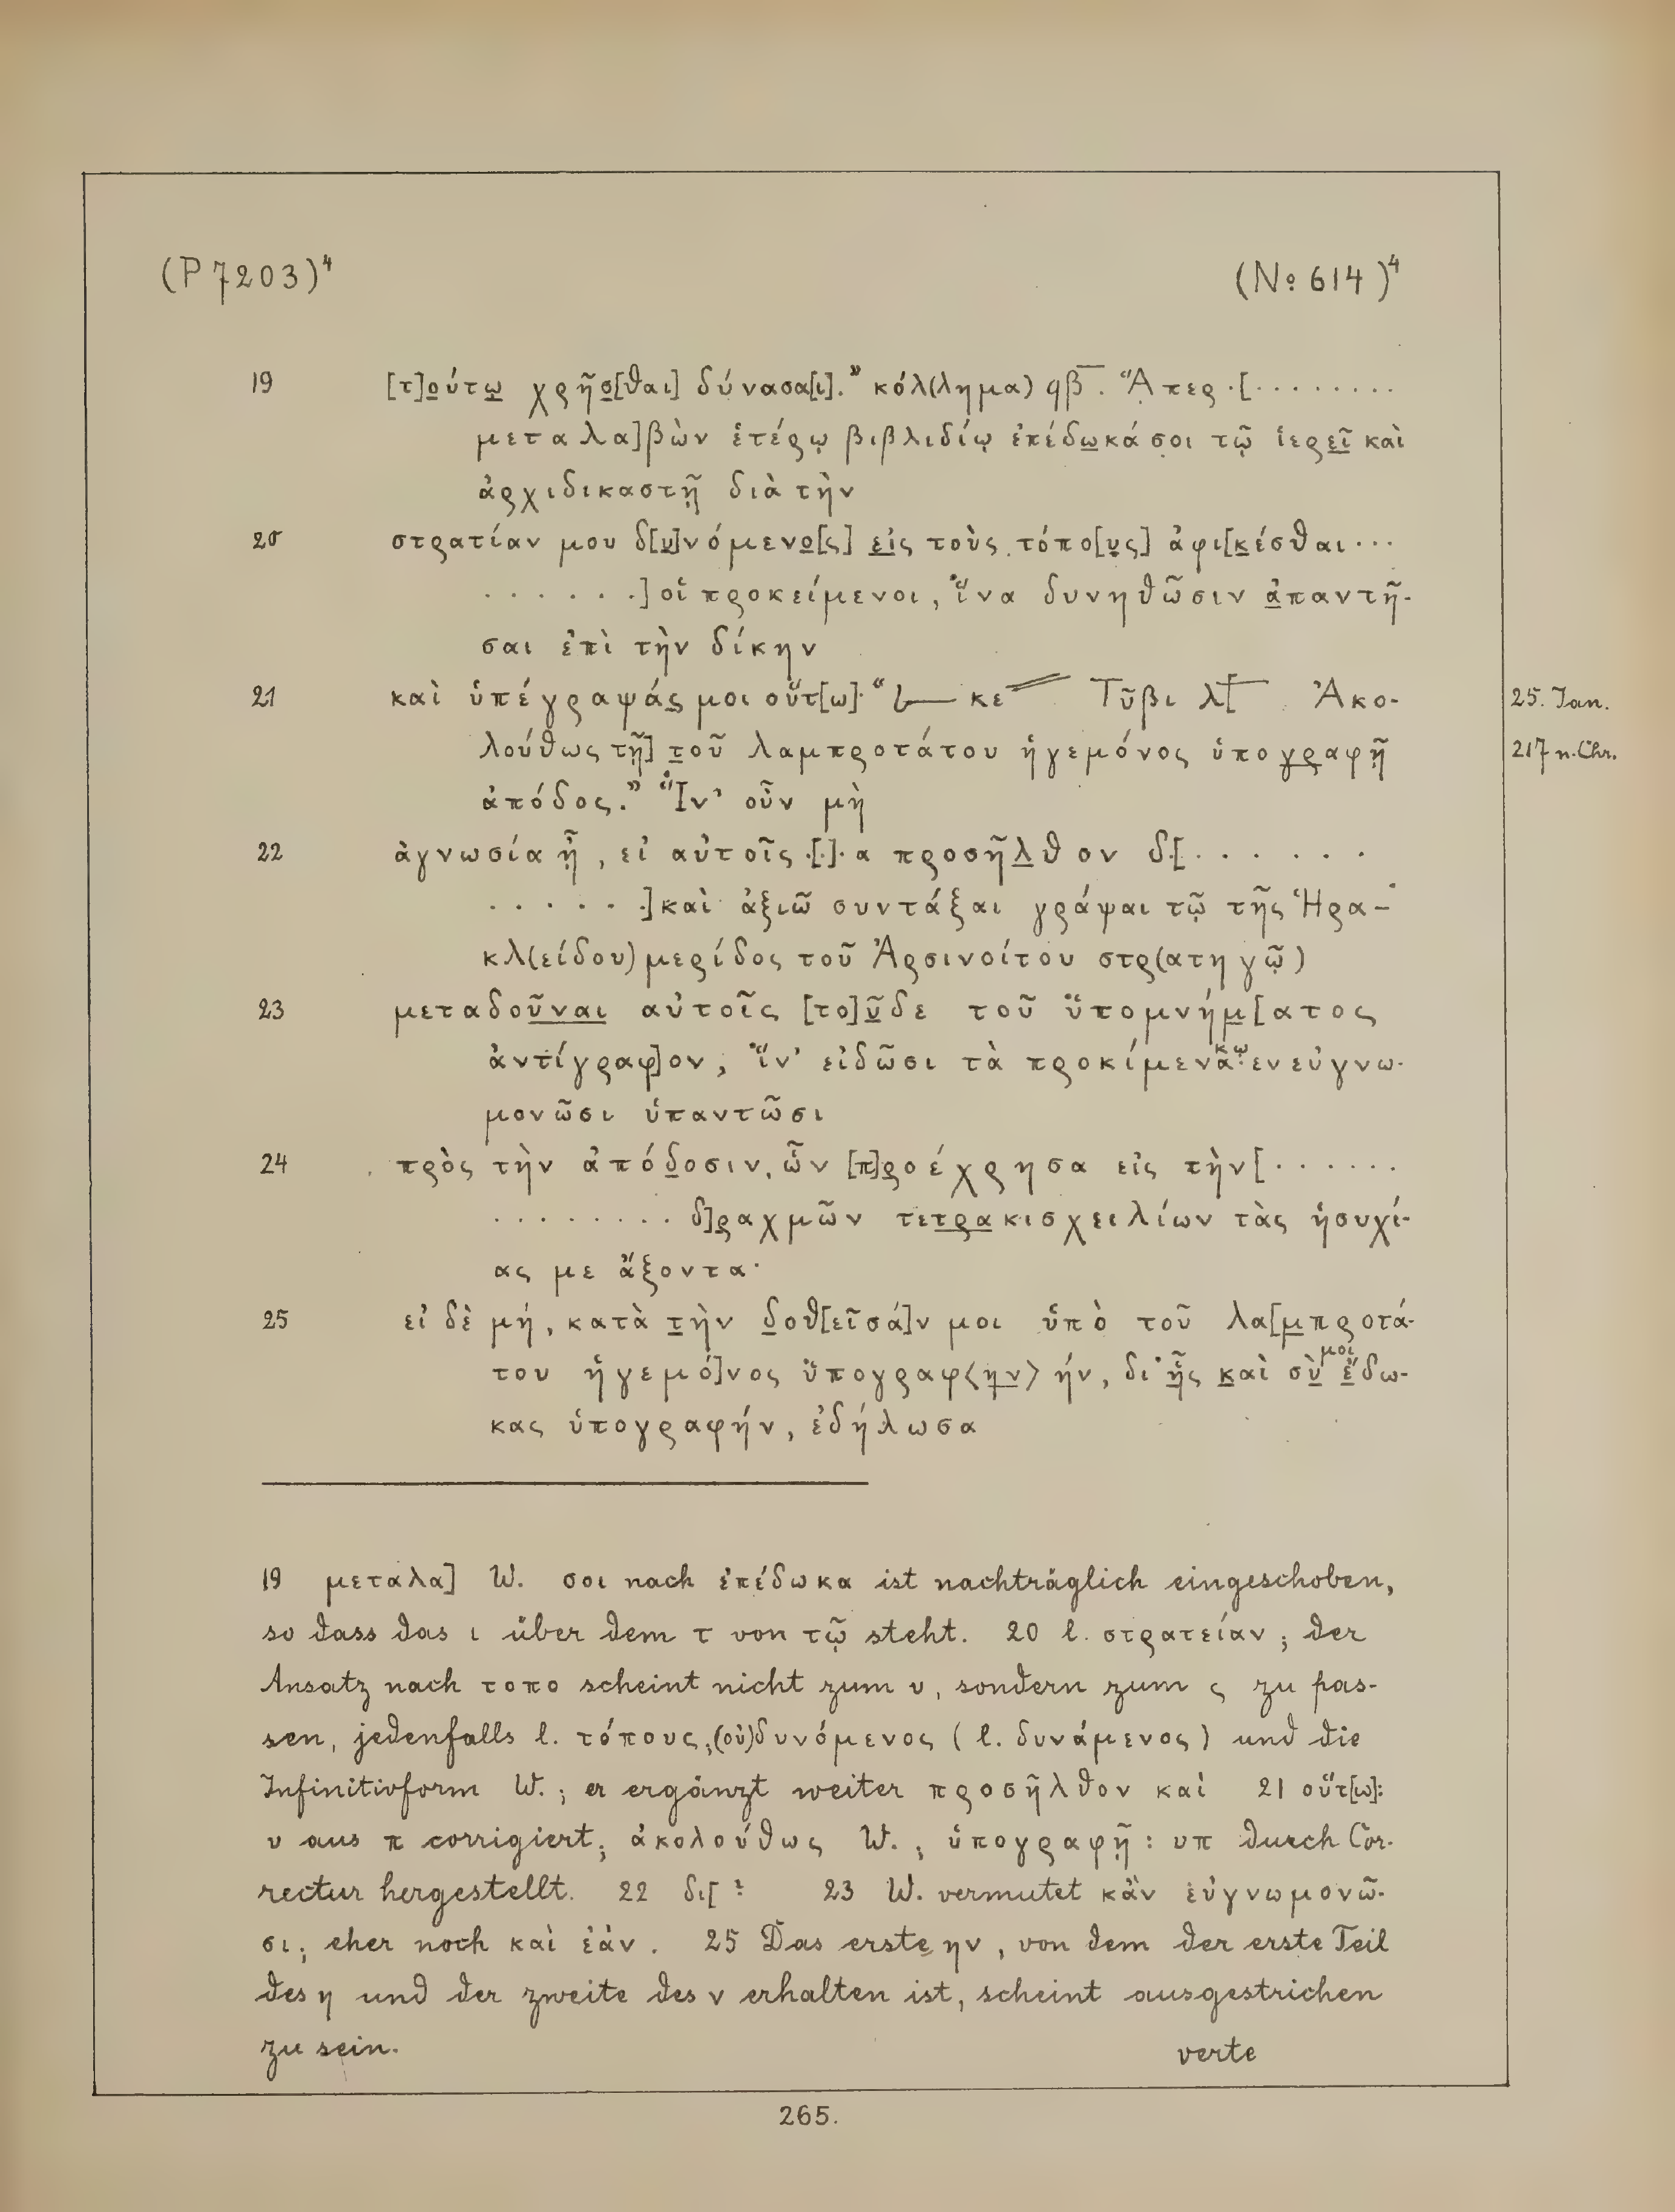 (P 7203)⁴ (No 614)⁴
19 [τ]ο̲ύτῳ̲ χρῆσ̲[θαι] δύνασα[ι].” κόλ(λημα) ϙβ̅. “Ἅπερ ·[· · · · · · · ·
μεταλα]βὼν ἑτέρῳ βιβλιδίῳ ἐπέδω̲κά σοι τῷ ἱερε̲ῖ̲ καὶ
ἀρχιδικαστῇ διὰ τὴν
20 στρατίαν μου δ[υ̲]νόμενο̲[ς] ε̲ἰ̲ς τοὺς τόπο[υ̲ς] ἀφι[κ̲έσθαι · · ·
· · · · · · ·] οἱ προκείμενοι, ἵνα δυνηθῶσιν ἀ̲παντῆ-
σαι ἐπὶ τὴν δίκην
21 καὶ ὑπέγραψάς̲ μοι οὕτ[ω]· “𐅹 κε Τῦβι λ[ Ἀκο-
λούθως τῇ] τ̲οῦ λαμπροτάτου ἡγεμόνος ὑπογ̲ρ̲αφῇ
ἀπόδος.” Ἵν’ οὖν μὴ
25. Jan.
217 n. Chr.
22 ἀγνωσία ᾖ, εἰ αὐτοῖς ·[·]· α προσῆλ̲θον δ·[· · · · · ·
· · · · · ·] καὶ ἀξιῶ συντάξαι γράψαι τῷ τῆς Ἡρα-
κλ(είδου) μερίδος τοῦ Ἀρσινοίτου στρ(ατηγῷ)
23 μεταδο̲ῦ̲ν̲α̲ι̲ αὐτοῖς [το]ῦ̲δε τοῦ ὕπομνήμ̲[ατος
ἀντίγραφ]ον, ἵν’ εἰδῶσι τὰ προκίμενα κω ενεὐγνω-
μονῶσι ὑπαντῶσι
24 πρὸς τὴν ἀπόδ̲οσιν, ὧν [π]ρ̲οέχρησα εἰς τὴν [· · · · · ·
· · · · · · · · δ]ρ̲αχμῶν τετ̲ρ̲α̲κισχειλίων τὰς ἡσυχί-
ας με ἄξοντα·
25 εἰ δὲ μή, κατὰ τ̲ὴν δ̲οθ[εῖσά]ν μοι ὑπὸ τοῦ λα[μ̲προτά-
του ἡγεμό]νος ὕπογραφ⟨η̲ν̲⟩ ήν, δι’ ἧ̲ς κ̲αὶ σὺ̲ μοι ἔ̲δω-
κας ὑπογραφήν, ἐδήλωσα
19 μεταλα] W. σοι nach ἐπέδωκα ist nachträglich eingeschoben,
so dass das ι über dem τ von τῷ steht. 20 l. στρατείαν; der
Ansatz nach τοπο scheint nicht zum υ, sondern zum ς zu pas-
sen, jedenfalls l. τόπους; (οὐ)δυνόμενος (l. δυνάμενος) und die
Infinitivform W.; er ergänzt weiter προσῆλθον καὶ 21 οὕτ[ω]:
υ aus π corrigiert; ἀκολούθως W.; ὑπογραφῇ: υπ durch Cor-
rectur hergestellt. 22 δι[ ? 23 W. vermutet κἂν εὐγνωμονῶ-
σι; eher noch καὶ ἐὰν. 25 Das erste ην, von dem der erste Teil
des η und der zweite des ν erhalten ist, scheint ausgestrichen
zu sein. verte
265.